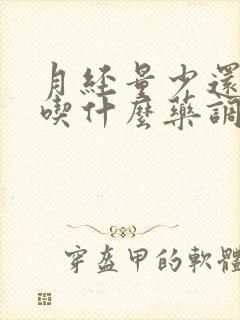 月經量少還
喫什麼藥調
穿盔甲的軟體